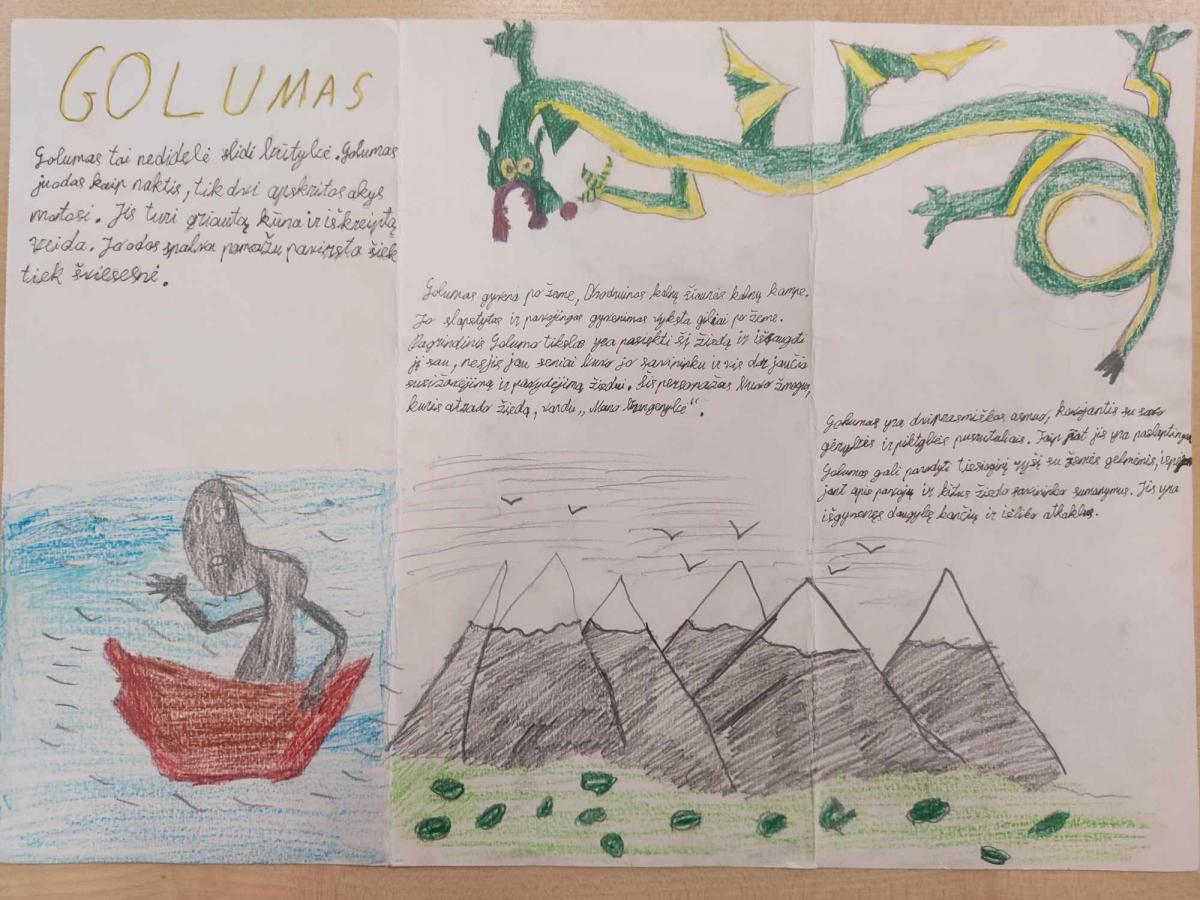 GOLUMAS
Golumas tai nedidelė slidi būtylcė. Golumas
juodas kaip naktis, tik dvi apskritos akys
matosi. Jis turi griautą kūna ir iškreiptą
veida. Jo odos spalva pamažu pavirsta šiek
tiek šviesesnė.
Golumas gyvena po žeme, kalnų šiaurės kalnų kampe.
Jo slapstytas ir pavojingas gyvenimas vyksta giliai po žeme.
Pagrindinis Golumo tikslas yra pasiekti šį žiedą ir
jį sau, nes jis jau seniai buvo jo savininku ir vis dar jaučia
susižavėjimą ir pavydėjimą žiedui. Šis personažas buvo žmogus,
kuris atrado žiedą, vardu „Mano Brangenybė".
Golumas yra dviprasmiškas asmuo, kovojantis su savo
gėrybės ir piktybės pusrutuliais. Taip pat jis yra paslaptingas
Golumas gali parodyti tiesioginį ryšį su žemės gelmėmis, įspėj
jant apie pavojų ir kitus žiedo savininko sumanymus. Jis yra
išgyvenęs daugybę kančių ir išliko atkaklus.